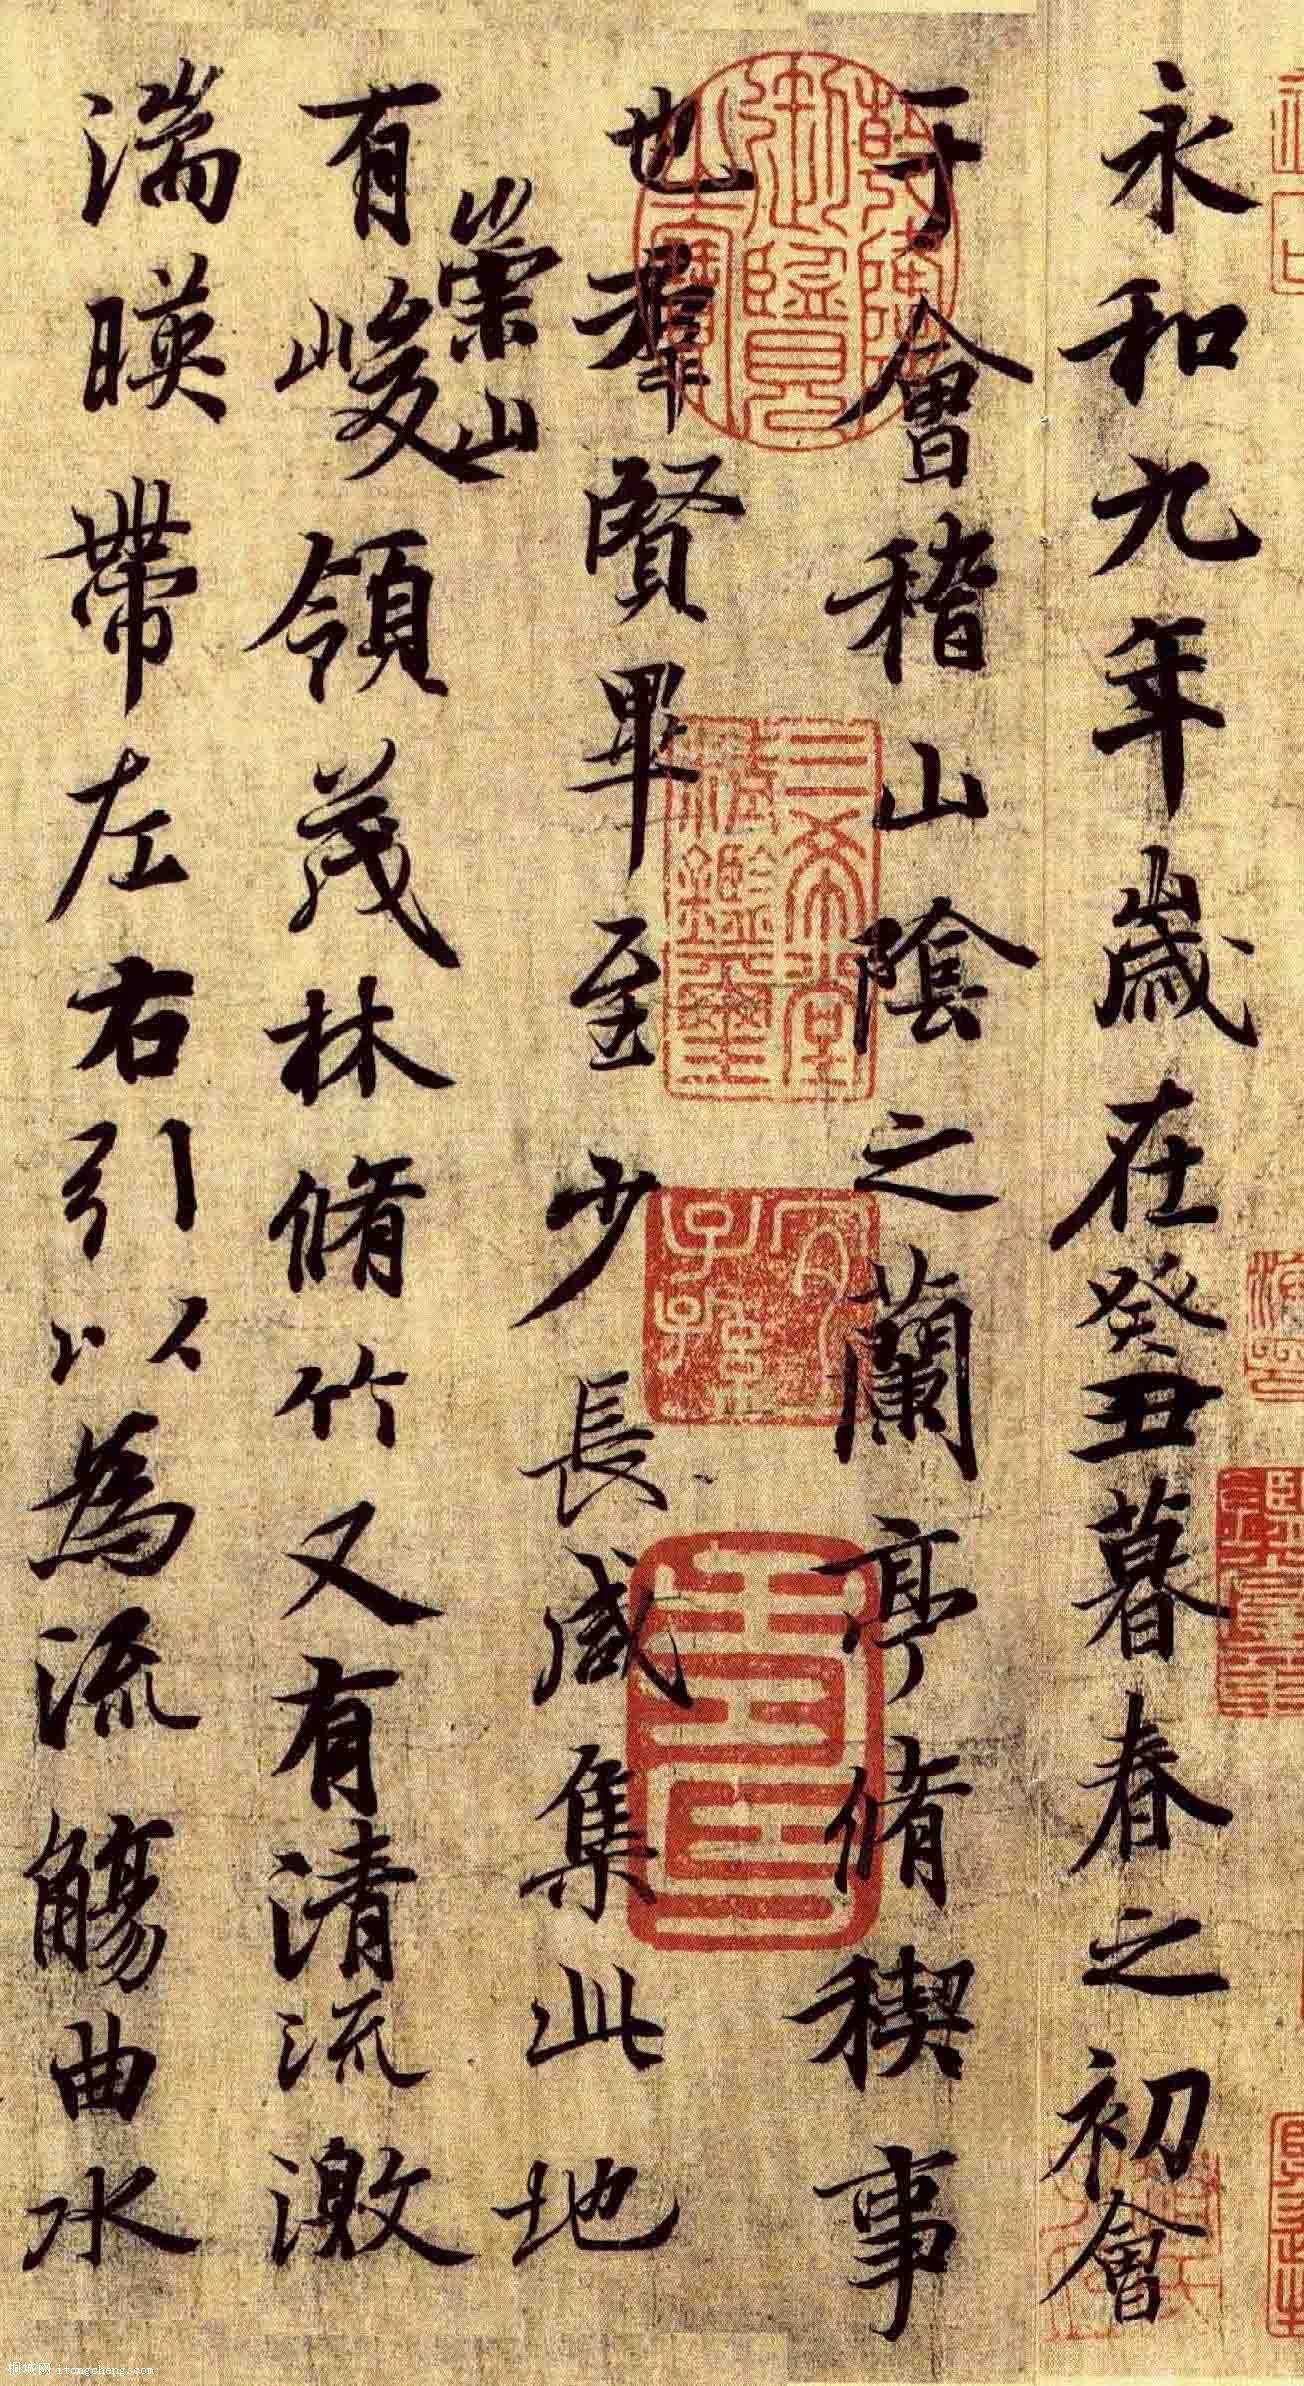 永和九年歲在癸丑暮春之初會
于會稽山陰之蘭亭脩稧事
也羣賢畢至少長咸集此地
有崇山峻領茂林脩竹又有清流激
湍暎帶左右引以為流觴曲水
乾隆御覽之寶
三希堂精鑑璽
宜子孫
桐城网 itongcheng.com